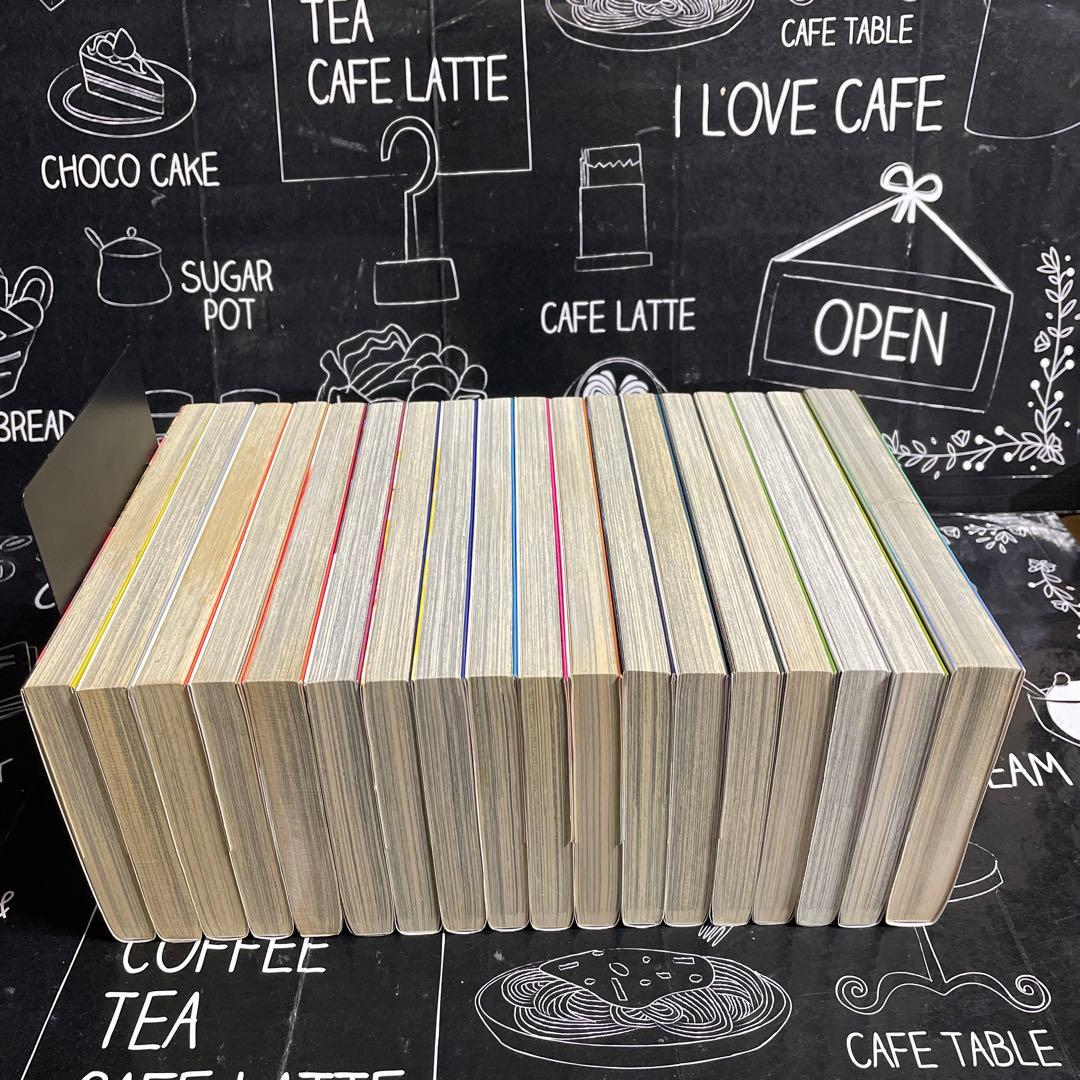 TEA
CAFE LATTE
CAFE TABLE
I LOVE CAFE
CHOCO CAKE
SUGAR
POT
CAFE LATTE
OPEN
BREAD
EAM
COFFEE
TEA
CAFE LATTE
CAFE TABLE